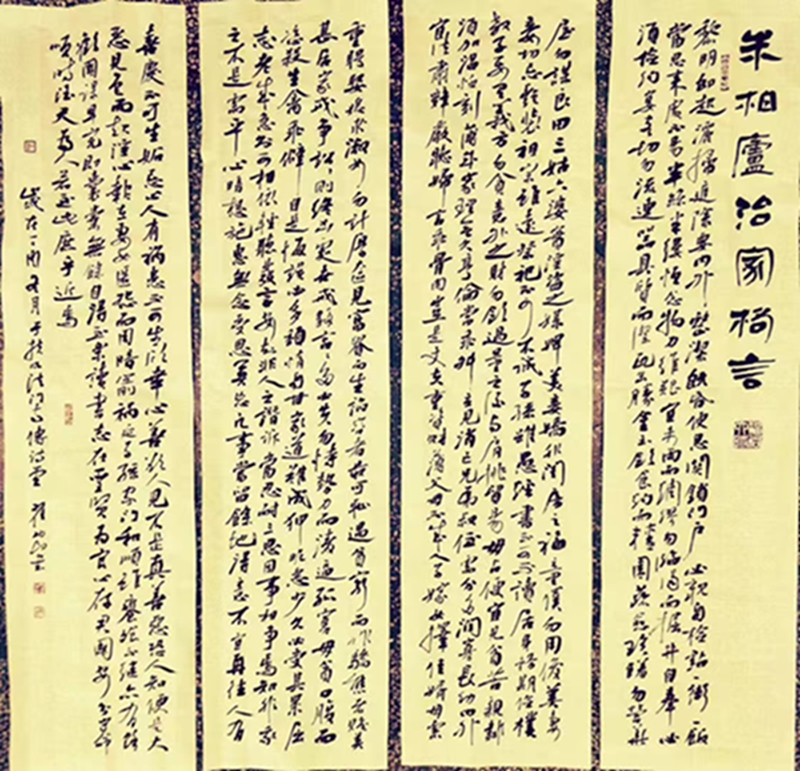 朱柏廬治家格言
黎明即起灑掃庭除要內外整潔既昏便息關鎖門戶必親自檢點一粥一飯
當思來處不易半絲半縷恒念物力維艱宜未雨而綢繆勿臨渴而掘井自奉必
須儉約宴客切勿流連器具質而潔瓦缶勝金玉飲食約而精園蔬愈珍饈勿營華
屋勿謀良田三姑六婆實淫盜之媒婢美妾嬌非閨房之福童僕勿用俊美妻
妾切忌艷裝祖宗雖遠祭祀不可不誠子孫雖愚經書不可不讀居身務期儉樸
教子要有義方勿貪意外之財勿飲過量之酒與肩挑貿易毋占便宜見貧苦親鄰
須加溫恤刻薄成家理無久享倫常乖舛立見消亡兄弟叔侄需分多潤寡長幼內外
宜法肅辭嚴聽婦言乖骨肉豈是丈夫重貲財薄父母不成人子嫁女擇佳婿毋索
重聘娶媳求淑女勿計厚奩見富貴而生諂容者最可恥遇貧窮而作驕態者賤莫
甚居家戒爭訟訟則終凶處世戒多言言多必失勿恃勢力而凌逼孤寡毋貪口腹而
恣殺生禽乖僻自是悔誤必多頹惰自甘家道難成狎昵惡少久必受其累屈
志老成急則可相依輕聽發言安知非人之譖訴當忍耐三思因事相爭焉知非我
之不是需平心暗想施惠無念受恩莫忘凡事當留餘地得意不宜再往人有
喜慶不可生妒忌心人有禍患不可生欣幸心善欲人見不是真善惡恐人知便是大
惡見色而起淫心報在妻女匿怨而用暗箭禍延子孫家門和順雖饔飧不繼亦有餘
歡國課早完即囊橐無餘自得至樂讀書志在聖賢為官心存君國安分守命
順時聽天為人若此庶乎近焉
歲在丁酉五月于